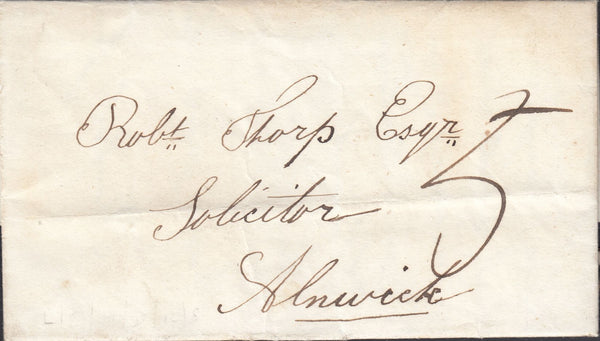 Robt Thorp Esqr
Solicitor
Alnwick
5